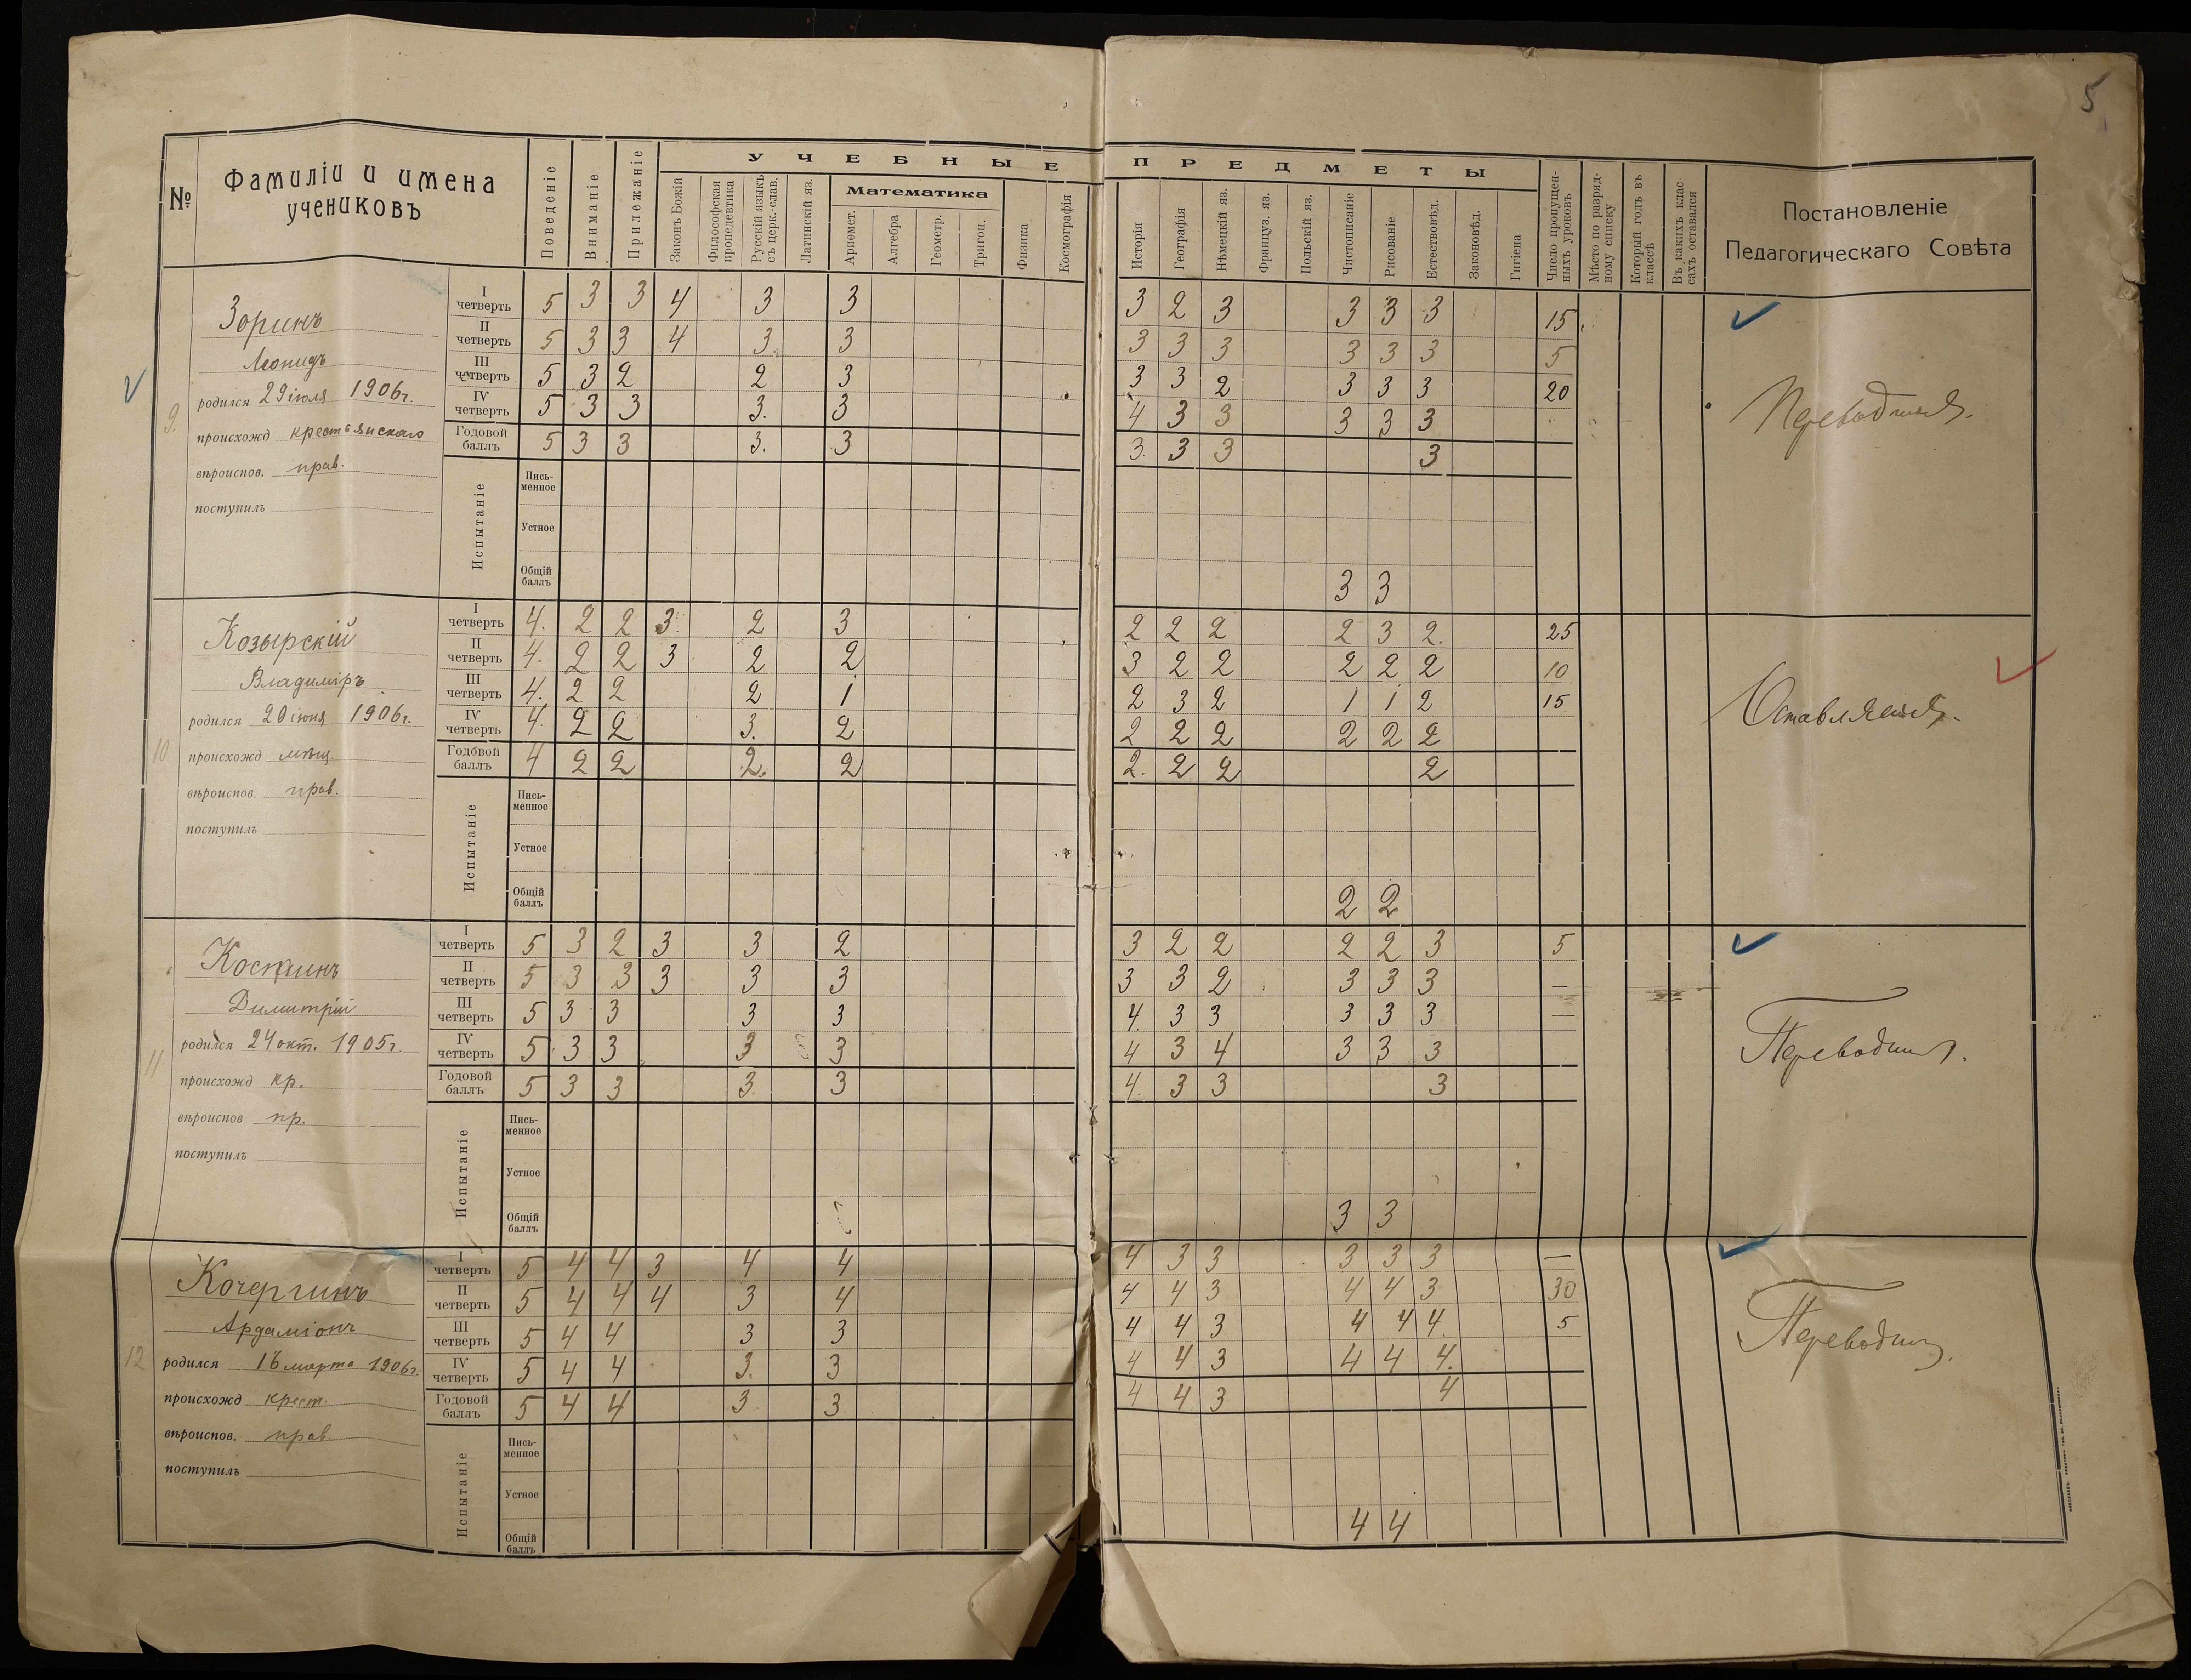 5
№ Фамиліи и имена учениковъ
Поведеніе Вниманіе Прилежаніе
УЧЕБНЫЕ ПРЕДМЕТЫ
Законъ Божій
Философская пропедевтика
Русскій языкъ съ церк.-слав.
Латинскій яз.
Математика
Ариѳмет. Алгебра Геометр. Тригон.
Физика Космографія
Исторія Географія Нѣмецкій яз. Француз. яз. Польскій яз. Чистописаніе Рисованіе Естествовѣд. Законовѣд. Гигіена
Число пропущен-ныхъ уроковъ
Мѣсто по разряд-ному списку
Который годъ въ классѣ
Въ какихъ клас-сахъ оставался
Постановленіе
Педагогическаго Совѣта
9.
Зоринъ
Леонидъ
родился 29 іюля 1906г.
происхожд крестьянскаго
вѣроиспов. прав.
поступилъ
I четверть 5 3 3 4 3 3 3 2 3 3 3 3 15
II четверть 5 3 3 4 3. 3 3 3 3 3 3 3 5
III четверть 5 3 2 2 3 3 3 2 3 3 3 20
IV четверть 5 3 3 3. 3 4 3 3 3 3 3
Годовой баллъ 5 3 3 3. 3 3. 3 3 3
Испытаніе
Пись-менное
Устное
Общій баллъ 3 3
Переводится.
10
Козырскій
Владиміръ
родился 20 іюня 1906г.
происхожд мѣщ.
вѣроиспов. прав.
поступилъ
I четверть 4. 2 2 3. 2 3 2 2 2 2 3 2. 25
II четверть 4. 2 2 3 2 2 3 2 2 2 2 2 10
III четверть 4. 2 2 2 1 2 3 2 1 1 2 15
IV четверть 4. 2 2 3. 2 2 2 2 2 2 2
Годовой баллъ 4 2 2 2. 2 2. 2 2 2
Испытаніе
Пись-менное
Устное
Общій баллъ 2 2
Оставляется.
11
Костинъ
Димитрій
родился 24 окт. 1905г.
происхожд кр.
вѣроиспов пр.
поступилъ
I четверть 5 3 2 3 3 2 3 2 2 2 2 3 5
II четверть 5 3 3 3 3 3 3 3 2 3 3 3 —
III четверть 5 3 3 3 3 4. 3 3 3 3 3 —
IV четверть 5 3 3 3 3 4 3 4 3 3 3
Годовой баллъ 5 3 3 3. 3 4. 3 3 3
Испытаніе
Пись-менное
Устное
Общій баллъ 3 3
12
Кочергинъ
Ардаліонъ
родился 16 марта 1906г.
происхожд крест.
вѣроиспов. прав.
поступилъ
I четверть 5 4 4 3 4 4 4 3 3 3 3 3 —
II четверть 5 4 4 4 3 4 4 4 3 4 4 3 30
III четверть 5 4 4 3 3 4 4 3 4 4 4. 5
IV четверть 5 4 4 3. 3 4 4 3 4 4 4.
Годовой баллъ 5 4 4 3 3 4 4 3 4
Испытаніе
Пись-менное
Устное
Общій баллъ 4 4